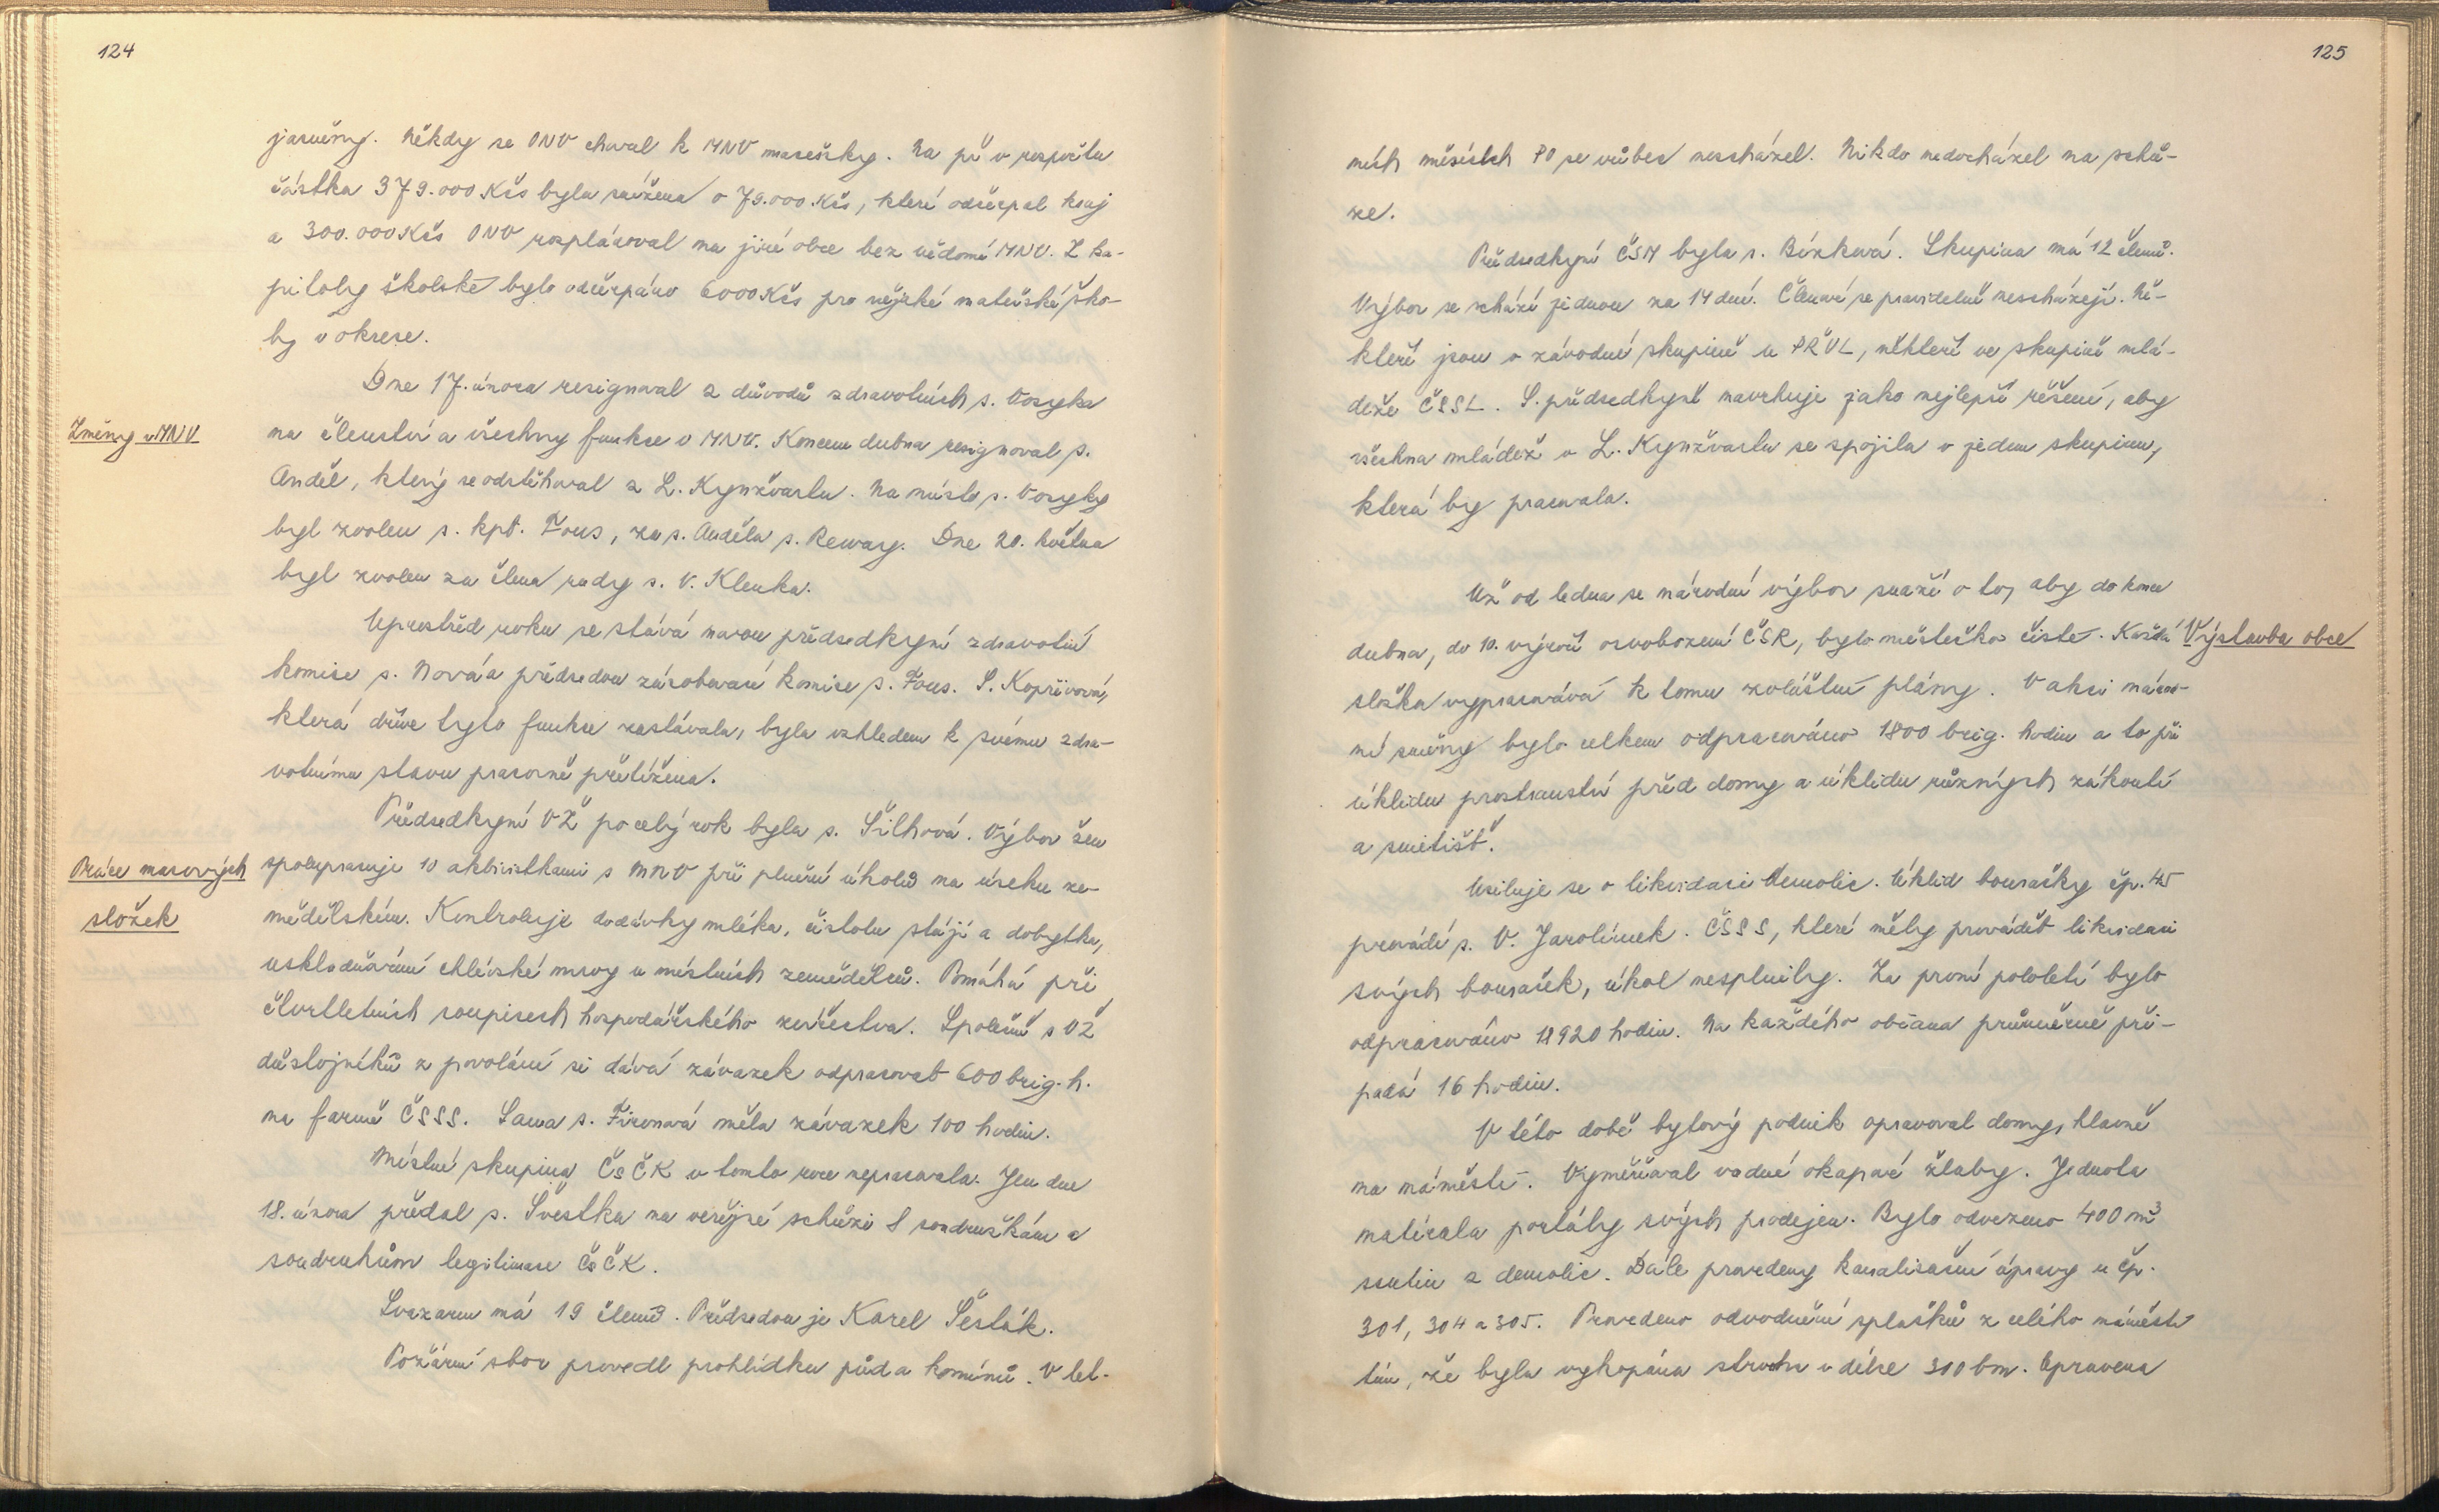 124
jasněny. Někdy se ONV choval k MNV macešsky. Na př v rozpočtu
částka 379.000 Kčs byla snížena o 79.000 Kčs, které odčerpal kraj
a 300.000 Kčs ONV rozplánoval na jiné obce bez vědomí MNV. Z ka-
pitoly školské bylo odčerpáno 6000 Kčs pro nějaké mateřské ško-
ly v okrese.
Dne 17. února resignoval z důvodů zdravotních s. Vosyka
Změny v MNV
na členství a všechny funkce v MNV. Koncem dubna resignoval s.
Anděl, který se odstěhoval z L. Kynžvartu. Na místo s. Vosyky
byl zvolen s. kpt. Fous, za s. Anděla s. Rewaj. Dne 20. května
byl zvolen za člena rady s. V. Klenka.
Uprostřed roku se stává novou předsedkyní zdravotní
komise s. Nová a předsedou zásobovací komise s. Fous. S. Kopřivová,
která dříve tyto funkce zastávala, byla vzhledem k svému zdra-
votnímu stavu pracovně přetížena.
Předsedkyní VŽ po celý rok byla s. Šilhová. Výbor žen
Práce masových
spolupracuje 10 aktivistkami s MNV při plnění úkolů na úseku ze-
složek
mědělském. Kontroluje dodávky mléka, čistotu stájí a dobytka,
uskladňování chlévské mrvy u místních zemědělců. Pomáhá při
čtvrtletních soupisech hospodářského zvířectva. Společně s VŽ
důstojníků z povolání si dává závazek odpracovat 600 brig. h.
na farmě ČSSS. Sama s. Fironová měla závazek 100 hodin.
Místní skupina ČsČK v tomto roce nepracovala. Jen dne
18. února předal s. Švestka na veřejné schůzi 8 soudružkám a
soudruhům legitimace ČsČK.
Svazarm má 19 členů. Předsedou je Karel Šesták.
Požární sbor provedl prohlídku půd a komínů. V let-
125
ních měsících PO se vůbec nescházel. Nikdo nedocházel na schů-
ze.
Předsedkyní ČSM byla s. Bízková. Skupina má 12 členů.
Výbor se schází jednou za 14 dní. Členové se pravidelně nescházejí. Ně-
kteří jsou v závodní skupině u PŘVL, někteří ve skupině mlá-
deže ČSSL. S. předsedkyně navrhuje jako nejlepší řešení, aby
všechna mládež v L. Kynžvartu se spojila v jednu skupinu,
která by pracovala.
Už od ledna se národní výbor snaží o to, aby do konce
dubna, do 10. výročí osvobození ČSR, bylo městečko čisté. Každá
Výstavba obce
složka vypracovává k tomu zvláštní plány. V akci národ-
ní směny bylo celkem odpracováno 1800 brig. hodin a to při
úklidu prostranství před domy a úklidu různých zákoutí
a smetišť.
Usiluje se o likvidaci demolic. Úklid bouračky čp. 45
provádí s. V. Jarolímek. ČSSS, které měly provádět likvidaci
svých bouraček, úkol nesplnily. Za první pololetí bylo
odpracováno 18920 hodin. Na každého občana průměrně při-
padá 16 hodin.
V této době bytový podnik opravoval domy, hlavně
na náměstí. Vyměňoval vadné okapové žlaby. Jednota
natírala portály svých prodejen. Bylo odvezeno 400 m³
ssutin z demolic. Dále provedeny kanalisační úpravy u čp.
301, 304 a 305. Provedeno odvodnění splašků z celého náměstí
tím, že byla vykopána strouha v délce 300 bm. Opravena